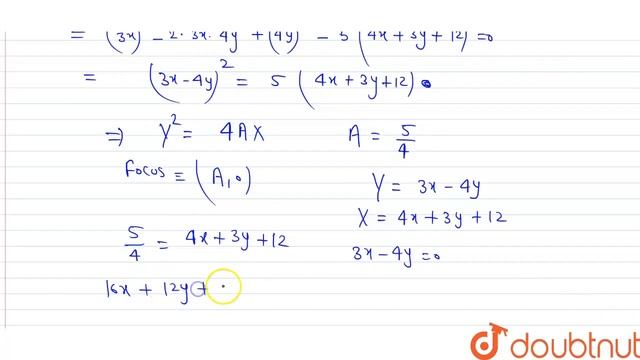 = (3x) - 2·3x·4y + (4y) - 5(4x+3y+12)=0
= (3x-4y)² = 5 (4x+3y+12)
⇒ Y² = 4AX
A = 5/4
Focus ≡ (A,0)
Y = 3x-4y
X = 4x+3y+12
5/4 = 4x+3y+12
3x-4y=0
16x + 12y +
doubtnut